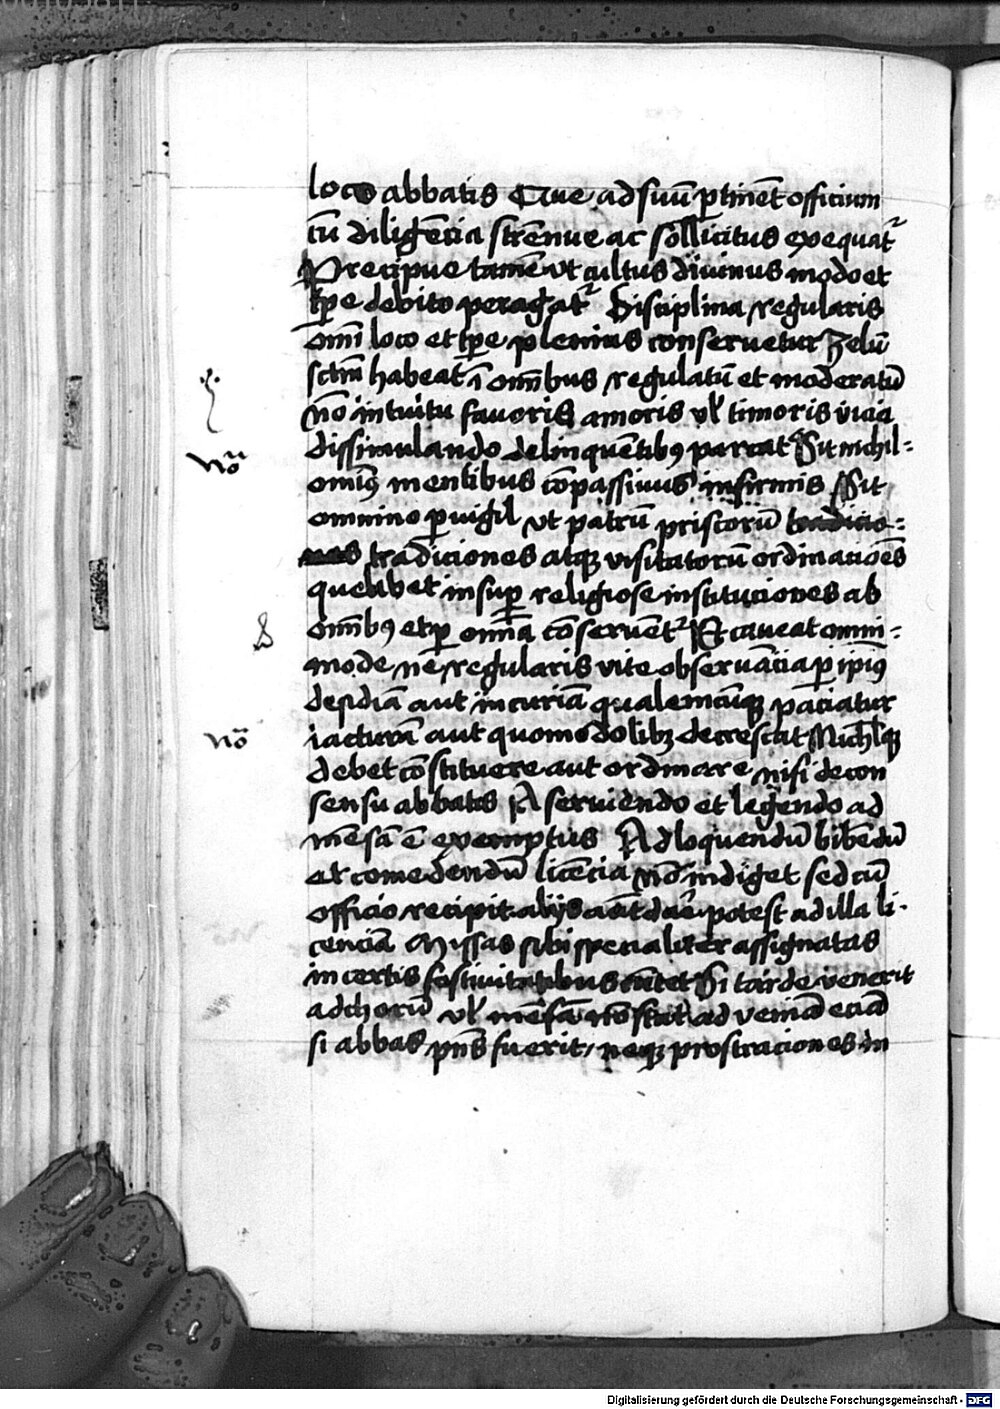 loco abbatis Que ad suū ꝑtinēt officium
cū diligēcia strēnue ac sollicitus exequat᷑
Precipue tamē vt cultus diuinus modo et
tp̄e debito peragat᷑ Disciplina regularis
om̄i loco et tp̄e plenius conseruetur Zelū
sctm̄ habeat ī om̄ibus regulatū et moderatū
nō intuitu fauoris amoris vl̓ timoris vicia
dissimulando delinquētibꝫ parcat Sit nichil-
omiꝰ mentibus cōpassiuus infirmis Sit
omnino ꝑuigil vt patrū priscorū
tradiciones atqꝫ visitatorū ordinacioēs
quelibet insuꝑ religiose instituciones ab
om̄ibꝫ et ꝑ om̄ia cōseruēt᷑ Et caueat omni-
mode ne regularis vite obseruācia ꝑ ip̄iꝰ
desidiā aut incuriā qualemcūqꝫ paciatur
iacturā aut quomodolibꝫ decrescat Nichilqꝫ
debet cōstituere aut ordinare nisi de con
sensu abbatis A seruiendo et legendo ad
mēsā ē exemptus Ad loquendū bibēdū
et comedendū licēcia nō indiget sed cū
officio recipit alijs autē dare potest ad illa li-
cenciā Missas sibi specialiter assignatas
in certis festiuitatibus cātet Si tarde venerit
ad chorū vl̓ mēsā nō stat ad veniā eciā
si abbas pn̄s fuerit / neqꝫ prostraciones in
nōᵃ
nō